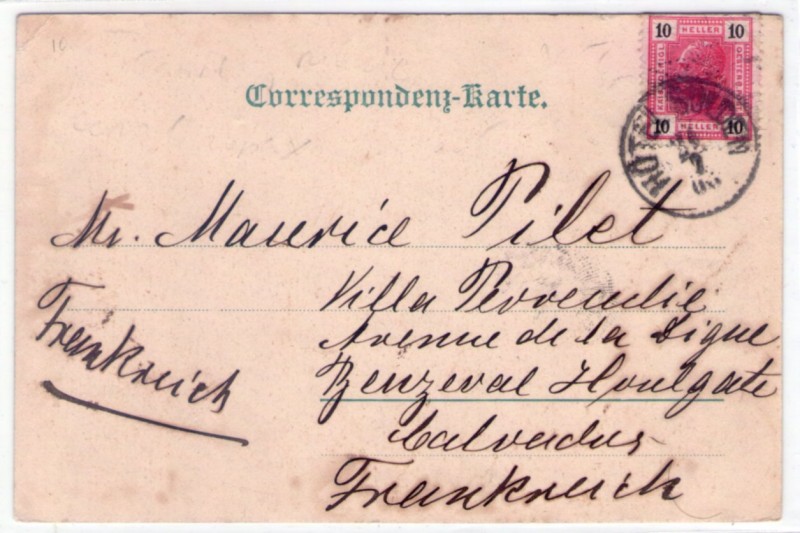 10 HELLER 10
10 HELLER 10
Correspondenz-Karte.
Mr. Maurice Pilet
Villa Pervenche
Avenue de la Digue
Benzeval Houlgate
Calvados
Frankreich
Frankreich